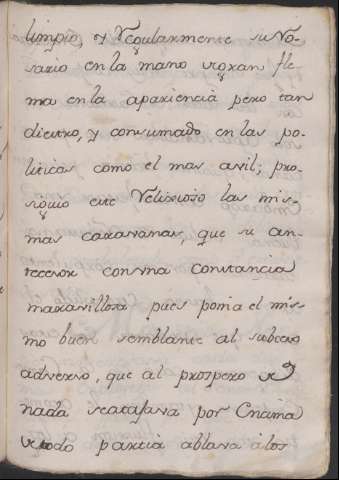 limpio, y Regularmente su Ro-
sario en la mano gran fle-
ma en la apariencia pero tan
diestro, y consumado en las po-
liticas como el mas avil; pro-
siguio este Relixioso las mis-
mas caravanas, que su an-
tecesor con vna constancia
maravillosa pues ponia el mis-
mo buen semblante al subceso
adverso, que al prospero
nada se atajava por Encima
todo partia ablava à los